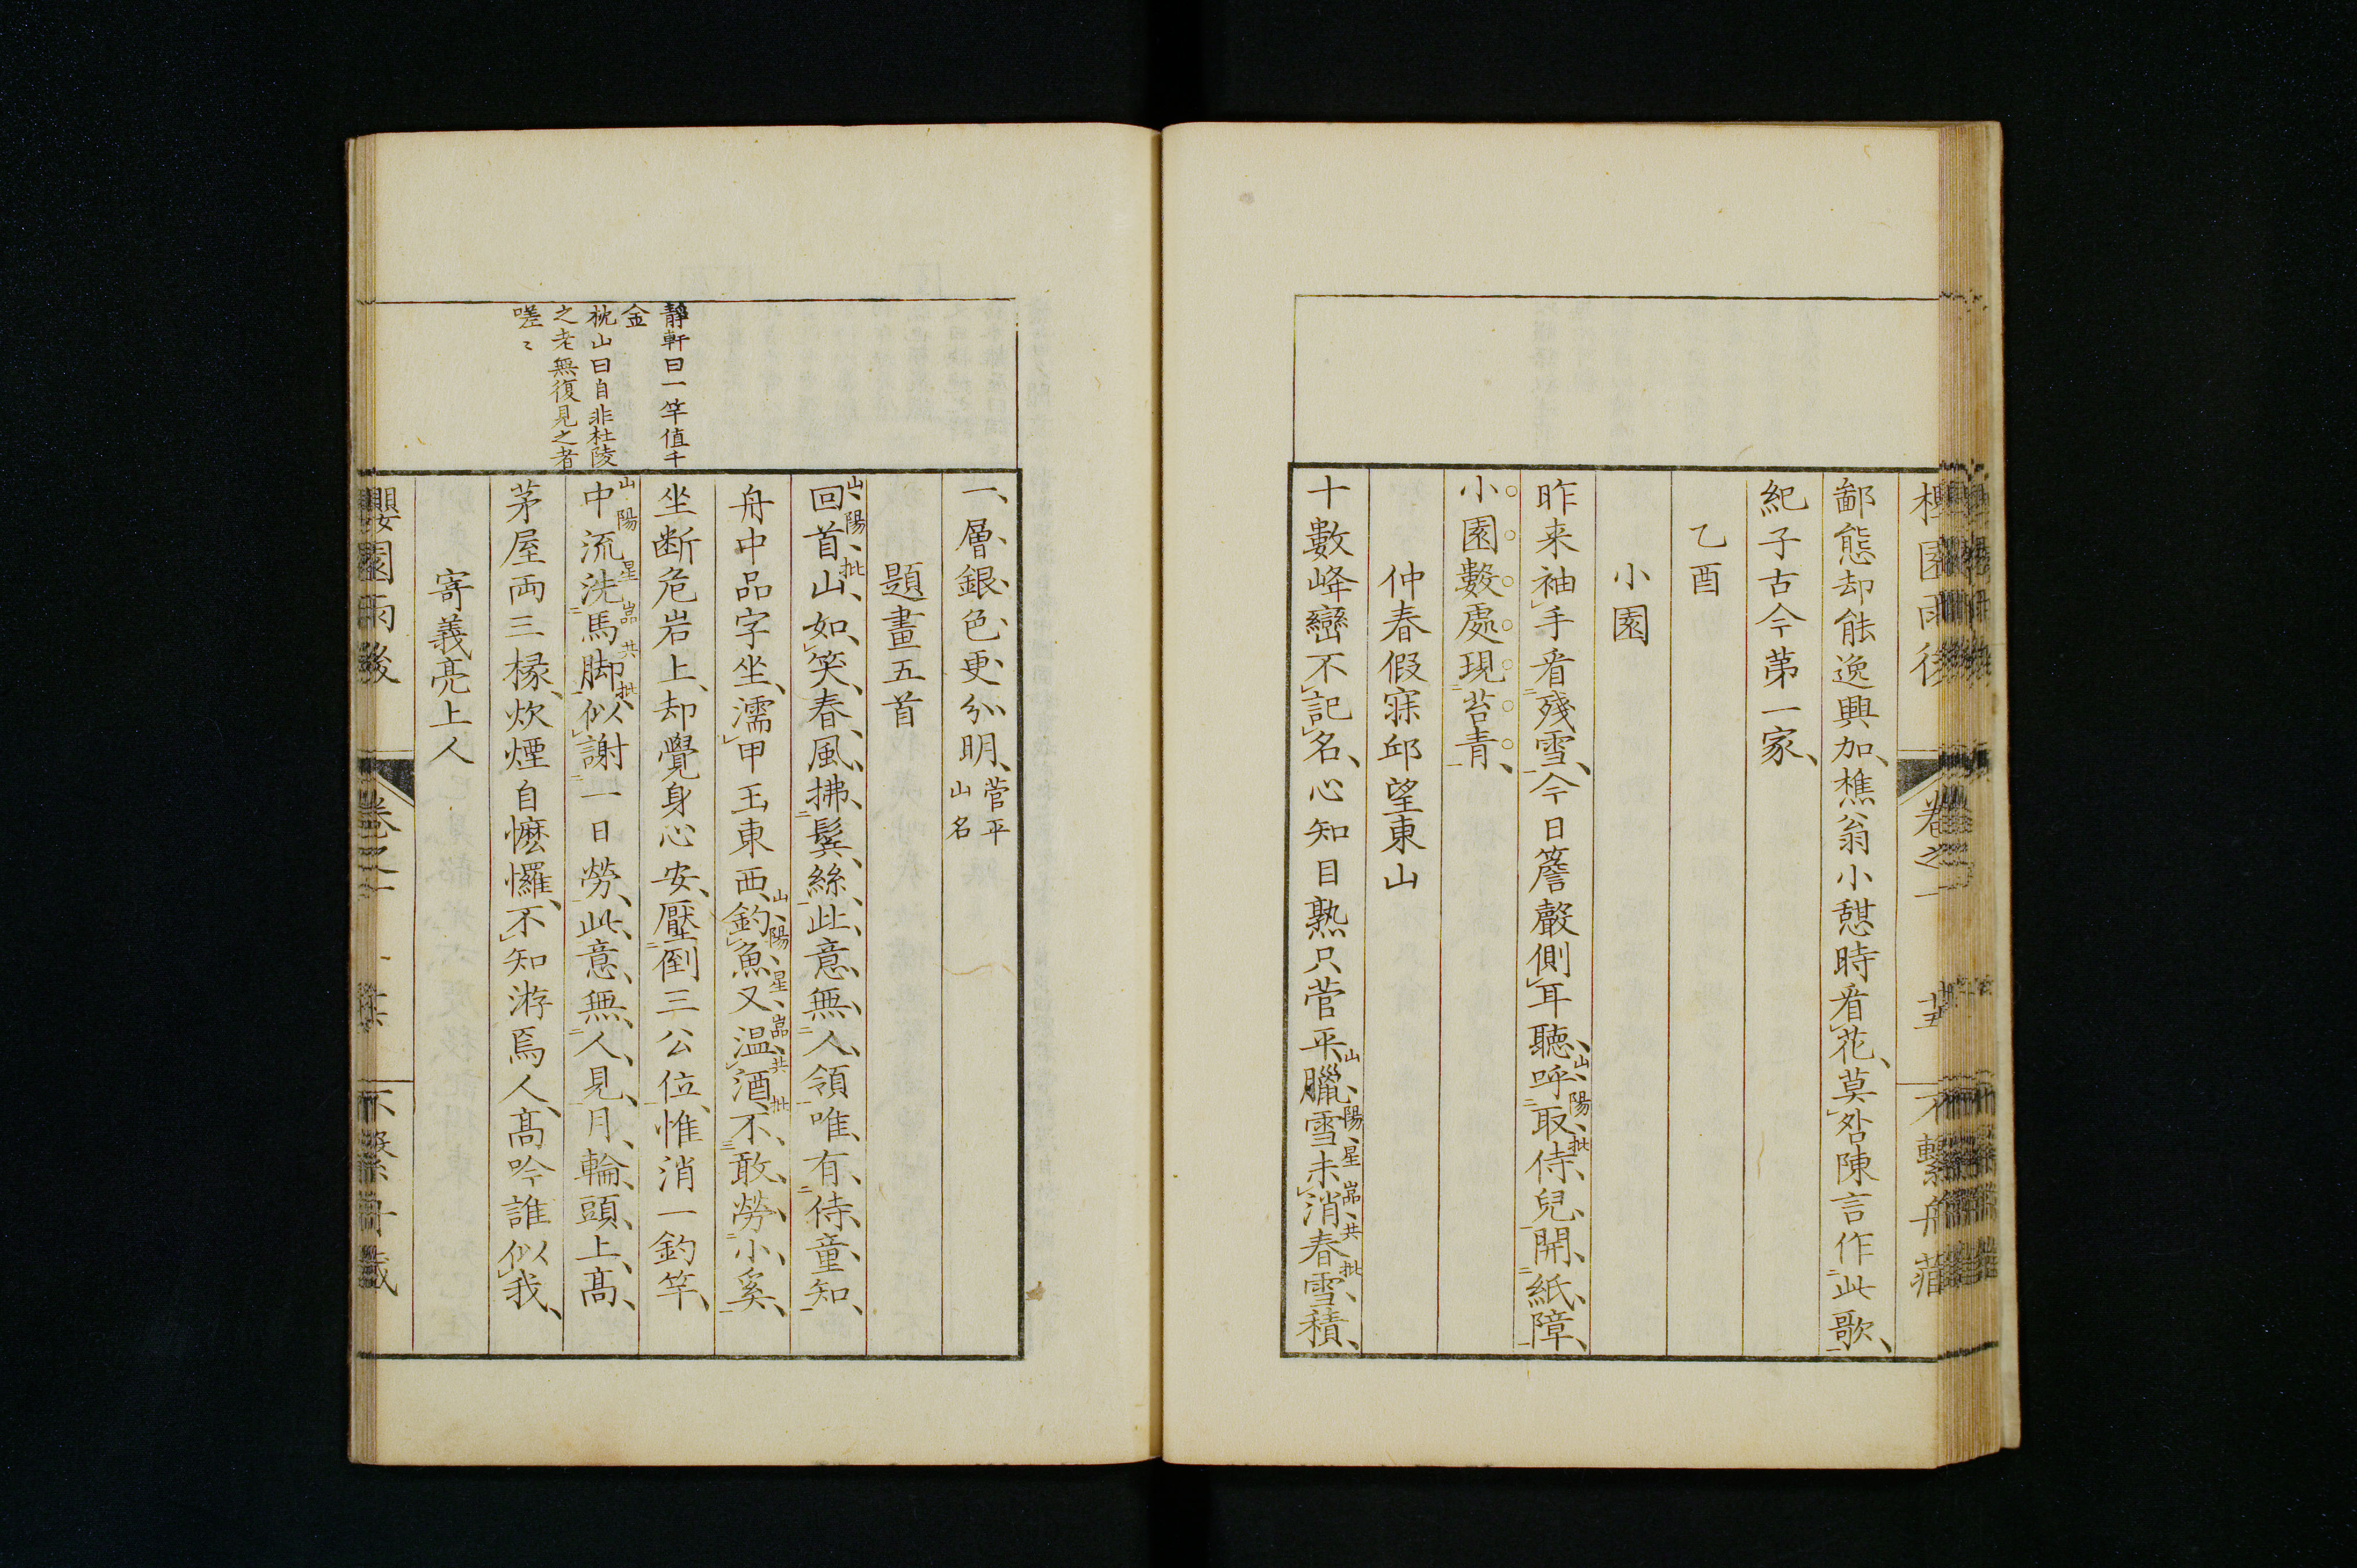 鄙態却能逸興加樵翁小憩時看花莫咎陳言作此歌
紀子古今第一家
乙酉
小園
昨来袖手看殘雪今日簷聲側耳聽呼取侍兒開紙障
山陽批
小園數處現苔青
仲春假寐邱望東山
十數峰巒不記名心知目熟只菅平臘雪未消春雪積
山陽星巌共批
一層銀色更分明
菅平
山名
題畫五首
回首山如笑春風拂鬓絲此意無人領唯有侍童知
山陽批
舟中品字坐濡甲玉東西釣魚又温酒不敢勞小奚
山陽星巌共批
靜軒曰一竿值千
金
坐断危岩上却覺身心安壓倒三公位惟消一釣竿
枕山曰自非杜陵
之老無復見之者
嗟〻
中流洗馬脚似謝一日勞此意無人見月輪頭上高
山陽星巌共批
茅屋両三椽炊煙自懡㦬不知游焉人高吟誰似我
寄義亮上人
櫻園雨後
卷之一
不繫舟藏